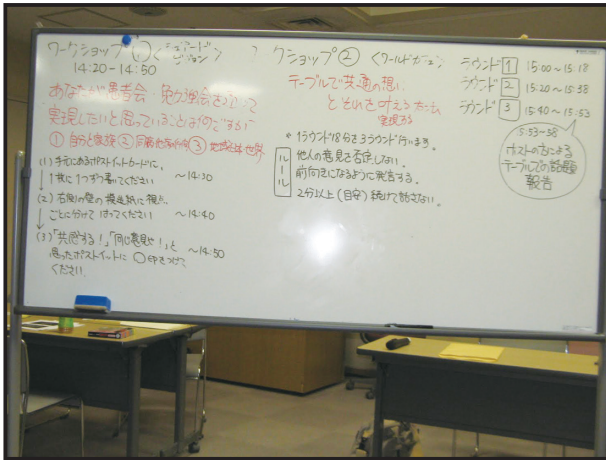 ワークショップ① <シェアードビジョン>
14:20-14:50
あなたが患者会・勉強会をつくって
実現したいと思っていることは何ですか
① 自分と家族 ② 同病他者 ③ 地域 世界
(1) 手元にあるポストイットカードに、
1枚に1つずつ書いてください ～14:30
(2) 右側の壁の模造紙に視点
ごとに分けてはってください ～14:40
(3) 「共感する!」「同じ意見や!」と ～14:50
思ったポストイットに ○印をつけて
ください。
クショップ② <ワールドカフェ>
テーブルで共通の想い
とそれを叶える方法
実現する
* 1ラウンド18分を3ラウンド行います。
ルール
他人の意見を否定しない。
前向きになるように発言する。
2分以上(目安)続けて話さない。
ラウンド 1 15:00～15:18
ラウンド 2 15:20～15:38
ラウンド 3 15:40～15:53
5:53～58
ホストの方による
テーブルでの話題
報告